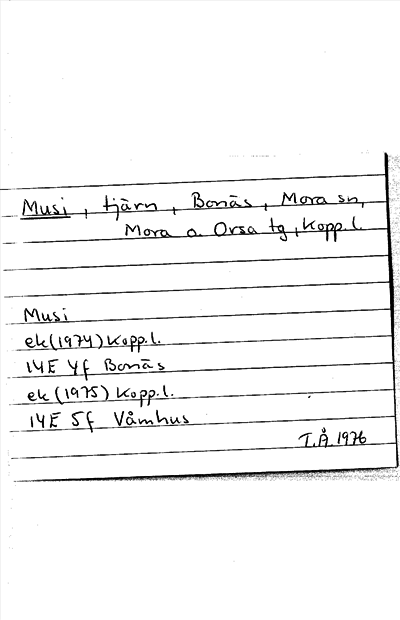 Musi, tjärn, Bonäs, Mora sn,
Mora o. Orsa tg, Kopp. l.
Musi
ek (1974) Kopp. l.
14E 4f Bonäs
ek (1975) Kopp. l.
14E 5f Våmhus
T.Å. 1976